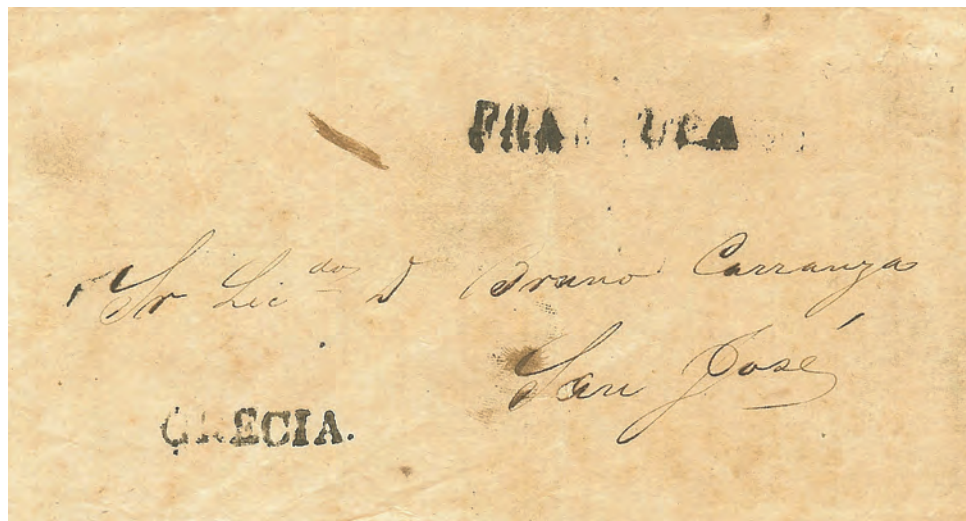 Sr Lic.do D Bruno Carranza
San José
GRECIA.